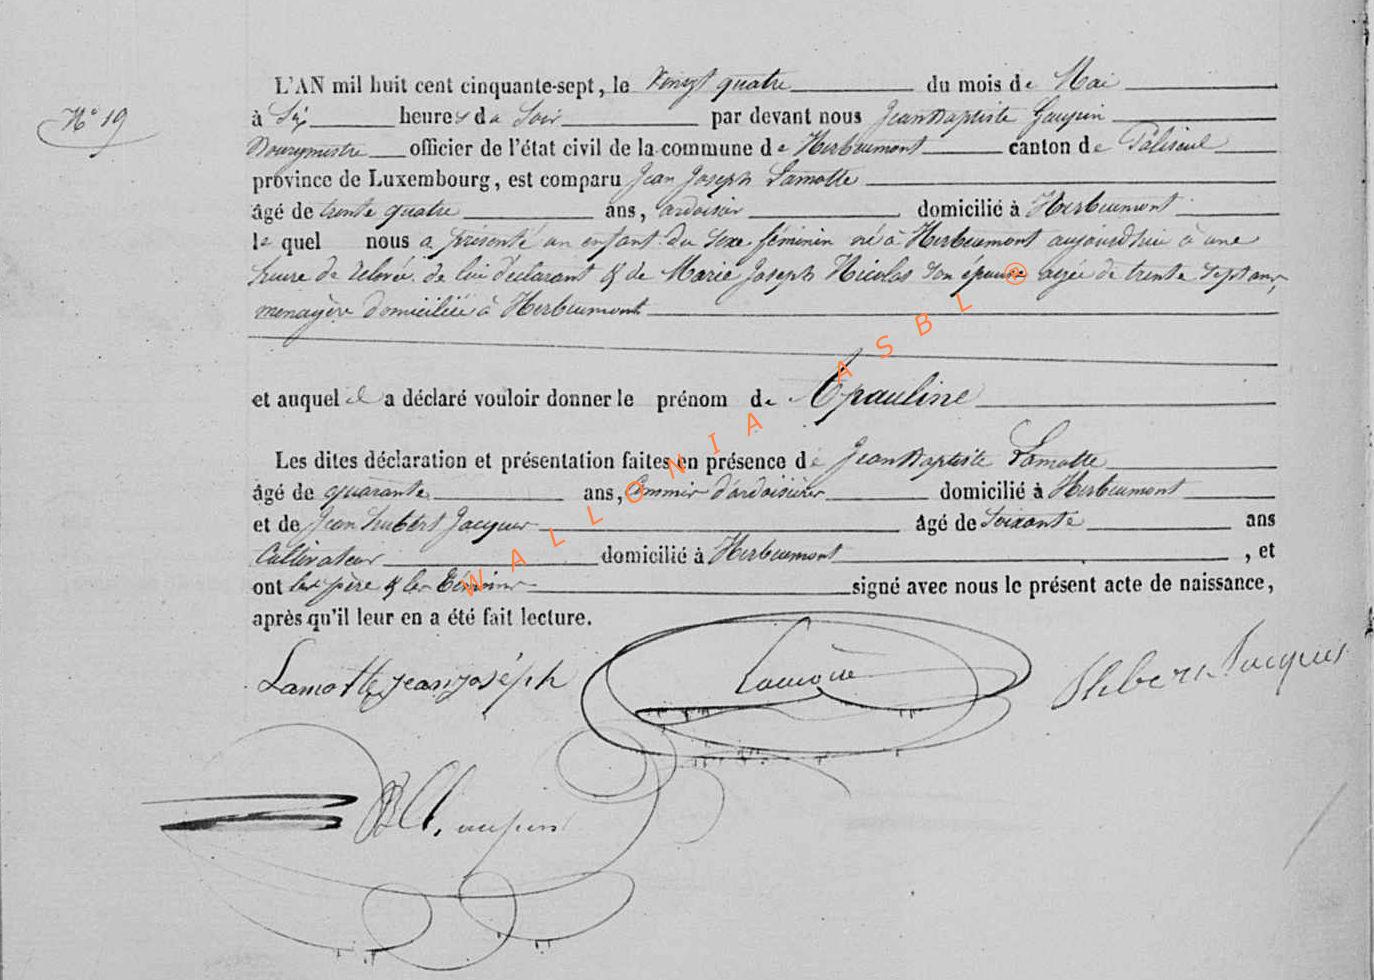 L'AN mil huit cent cinquante-sept, le Vingt quatre du mois de Mai
N° 19
à Six heures du Soir par devant nous Jean Baptiste Gaupin
Bourgmestre officier de l'état civil de la commune de Herbeumont canton de Paliseul
province de Luxembourg, est comparu Jean Joseph Lamotte
âgé de trente quatre ans, ardoisier domicilié à Herbeumont
le quel nous a présenté un enfant du sexe féminin né à Herbeumont aujourd'hui à une
heure de relevée de lui déclarant & de Marie Joseph Nicolas son épouse agée de trente sept ans,
menagère domiciliée à Herbeumont
et auquel il a déclaré vouloir donner le prénom de pauline
Les dites déclaration et présentation faites en présence de Jean Baptiste Lamotte
âgé de quarante ans, Commis d'ardoisière domicilié à Herbeumont
et de Jean hubert Jacques âgé de Soixante ans
Cultivateur domicilié à Herbeumont, et
ont les père & les témoins signé avec nous le présent acte de naissance,
après qu'il leur en a été fait lecture.
Lamotte jean joséph Lamotte Jacques
WALLONIA ASBL ®